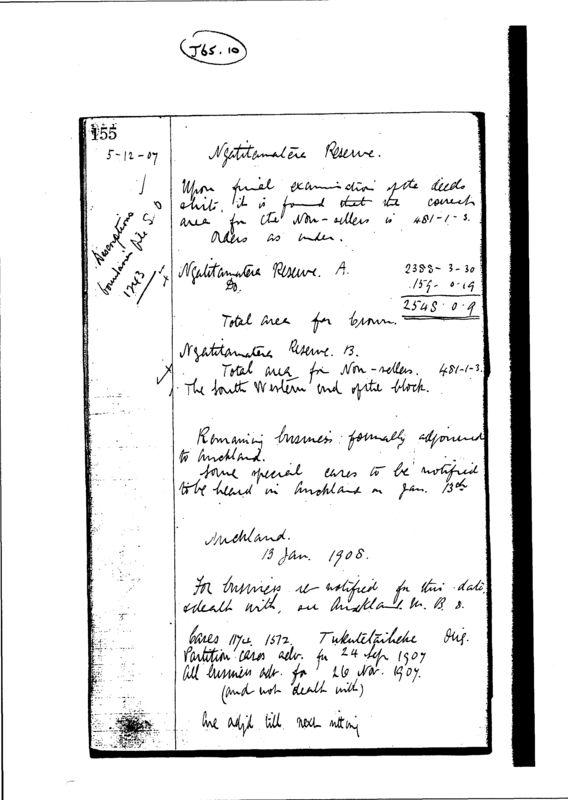 J65.10
155
5-12-07
Descriptions
boundaries file S. O
1743
Ngatitamatera Reserve.
Upon final examination of the deeds
it is found that the correct
area for the Non-sellers is 481-1-3.
Orders as under.
Ngatitamatera Reserve. A. 2388-3-30
Do. 159-0-19
2548.0.9
Total area for Crown.
Ngatitamatera Reserve. B.
Total area for Non-sellers. 481-1-3.
The South Western end of the block.
Remaining business formally adjourned
to Auckland.
Some special cases to be notified
to be heard in Auckland on Jan. 13th
Auckland.
13 Jan. 1908.
For business re-notified for this date
& dealt with, see Auckland M. B. 8.
Cases 1572, Orig.
Partition cases adv. for 24 Sep 1907
All business adv. for 26 Nov. 1907.
(and not dealt with)
Are adjd till next sitting